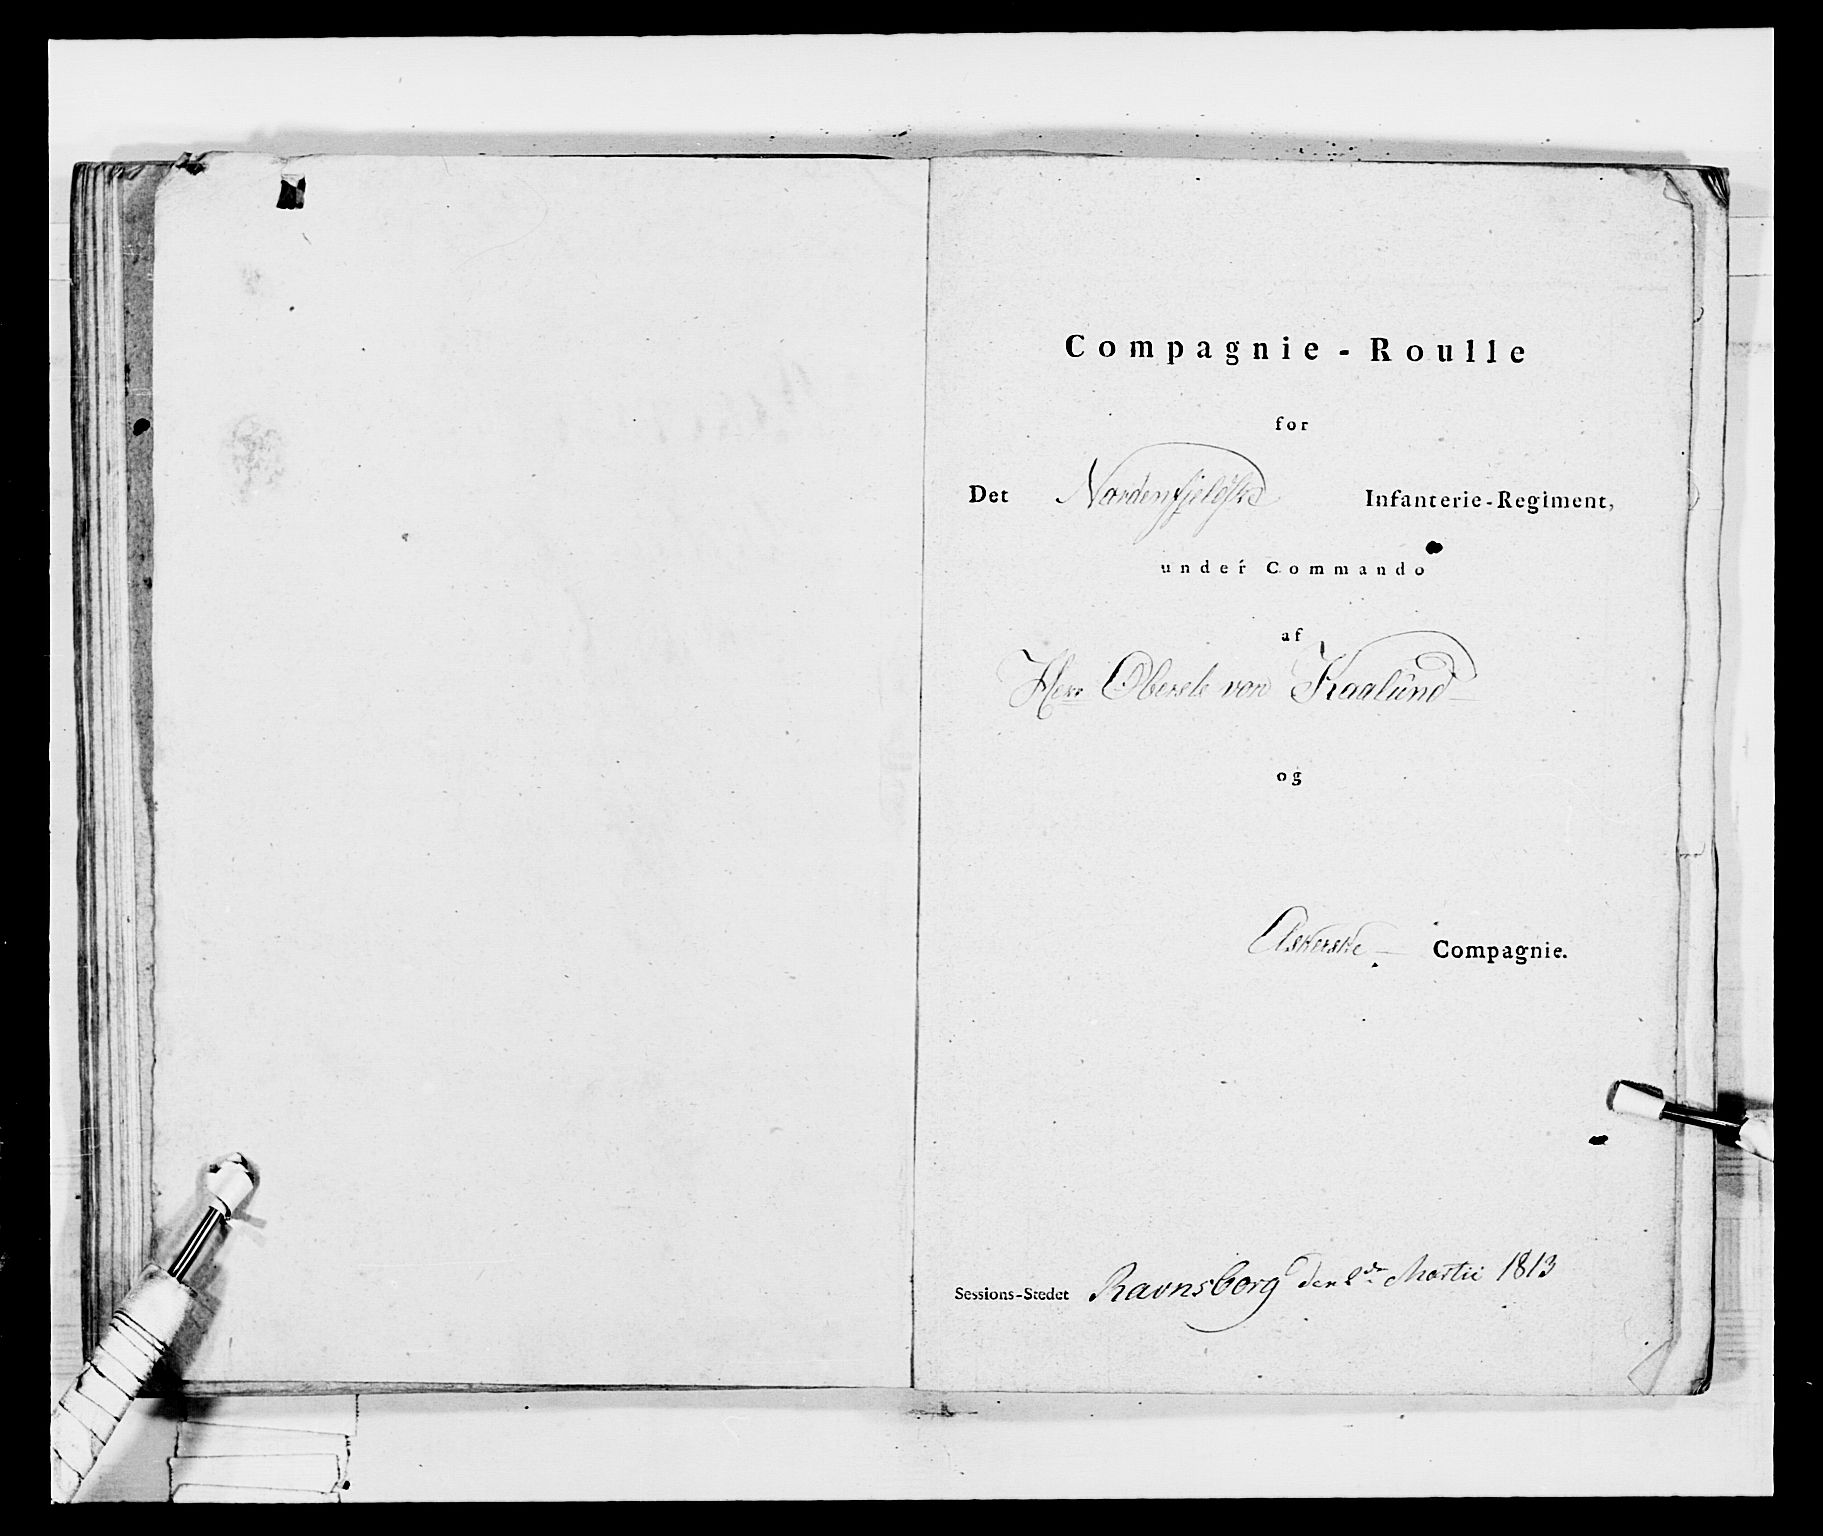 Compagnie-Roulle
for
Det Nordenfjeldske Infanterie-Regiment,
under Commando
af
Herr Oberste von Kaalund
og
Askerske Compagnie.
Sessions-Stedet Ravnsborg den 2de Martii 1813